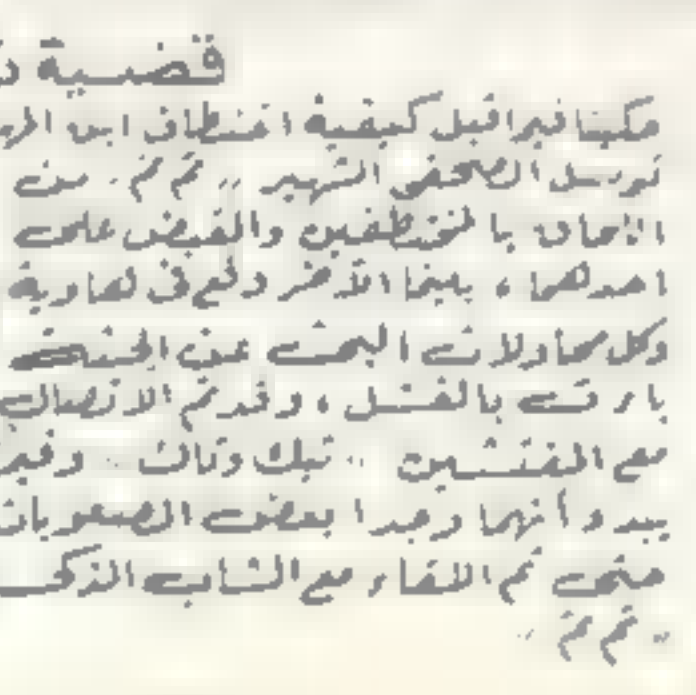 قضية
حكينا فيما قبل كيفية اختطاف ابن
توصل الصحفي الشهير .. تم تم . من
اللحاق بالمختطفين والقبض على
احدهما ، بينما الآخر وقع في لهاوية
وكل محاولات البحث عن الجثة
باءت بالفشل ، وقد تم الاتصال
مع المفتشين .. تيك وتاك ..
يبدو أنهما وجدا بعض الصعوبات
حتى تم اللقاء مع الشاب الذكي
.. تم تم ..